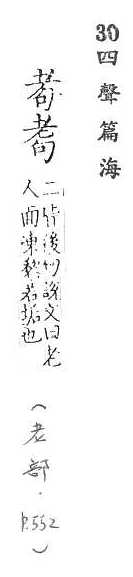 30四聲篇海
耈
二皆後切說文曰老
人面凍黎若垢也
(老部．P.552)